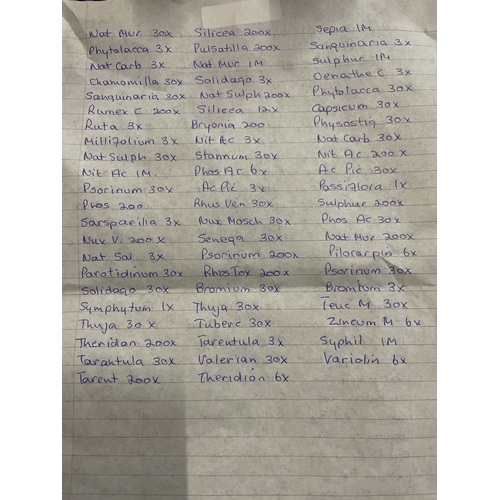 Nat Mur 30x
Phytolacca 3x
Nat Carb 3x
Chamomilla 30x
Sanguinaria 30x
Rumex C 200x
Ruta 3x
Millifolium 3x
Nat Sulph 30x
Nit Ac 1M.
Psorinum 30x
Phos 200
Sarsparilia 3x
Nux V. 200x
Nat Sal 3x
Paratidinum 30x
Solidago 30x
Symphytum 1x
Thuja 30x
Theridon 200x
Tarantula 30x
Tarent 200x
Silicea 200x
Pulsatilla 200x
Nat Mur 1M
Solidago 3x
Nat Sulph 200x
Silicea 12x
Bryonia 200
Nit Ac 3x
Stannum 30x
Phos Ac 6x
Ac Pic 3x
Rhus Ven 30x
Nux Mosch 30x
Senega 30x
Psorinum 200x
Rhus Tox 200x
Bromium 30x
Thuja 30x
Tuberc 30x
Tarentula 3x
Valerian 30x
Theridion 6x
Sepia 1M
Sanguinaria 3x
Sulphur 1M
Oenathe C 3x
Phytolacca 30x
Capsicum 30x
Physostig 30x
Nat Carb 30x
Nit Ac 200x
Ac Pic 30x
Passiflora 1x
Sulphur 200x
Phos Ac 30x
Nat Mur 200x
Pilocarpin 6x
Psorinum 30x
Bromium 3x
Teuc M 30x
Zincum M 6x
Syphil 1M
Variolin 6x